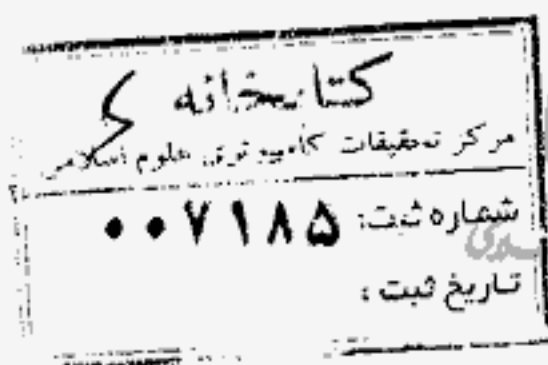 کتابخانه
مرکز تحقیقات کامپیوتری علوم اسلامی
شماره ثبت: ۰۰۷۱۸۵
تاریخ ثبت :